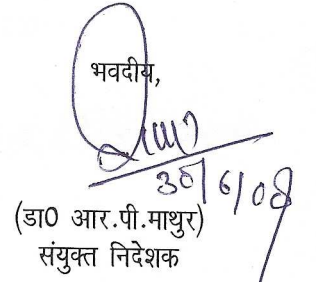 भवदीय,
30/6/08
(डा0 आर.पी.माथुर)
संयुक्त निदेशक